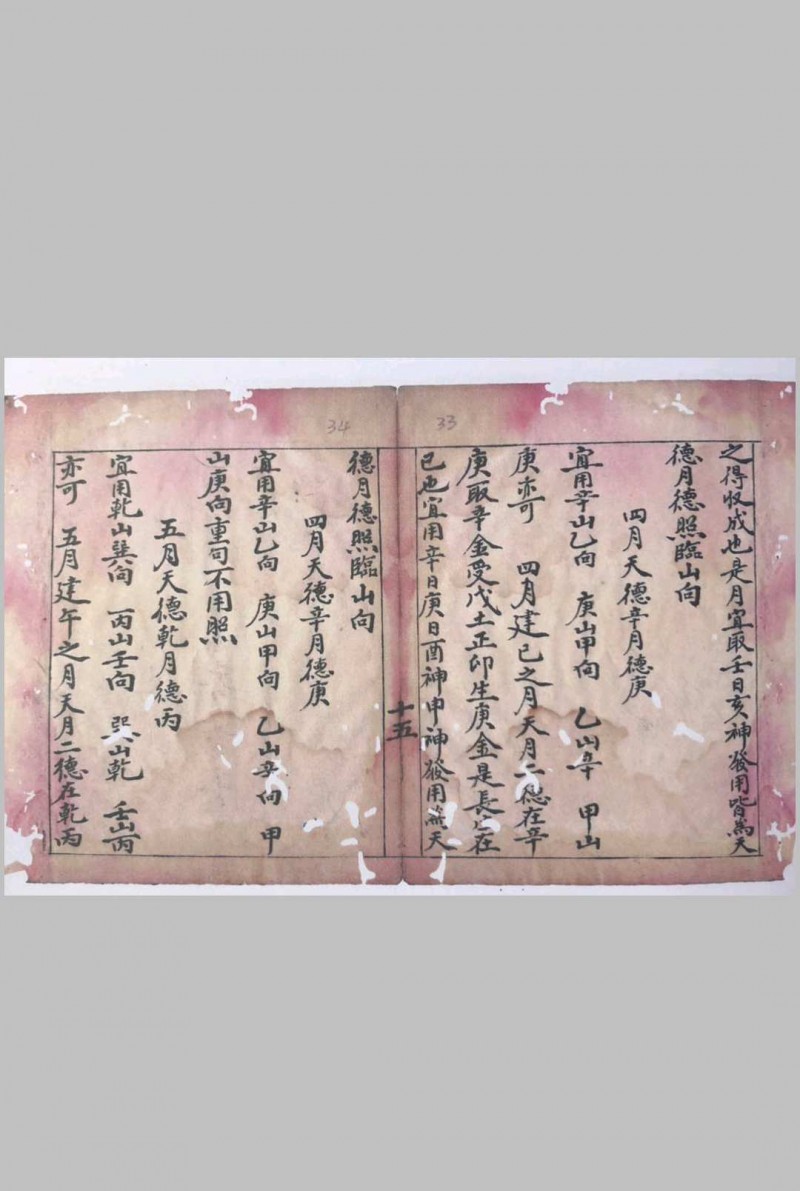 33
之得收成也是月宜取壬日亥神發用皆為天
德月德照臨山向
四月天德辛月德庚
宜用辛山乙向 庚山甲向 乙山辛 甲山
庚亦可 四月建巳之月天月二德在辛
庚取辛金受戊土正印生庚金是長生在
巳也宜用辛日庚日酉神申神發用為天
十五
34
德月德照臨山向
四月天德辛月德庚
宜用辛山乙向 庚山甲向 乙山辛向 甲
山庚向重句不用照
五月天德乾月德丙
宜用乾山巽向 丙山壬向 巽山乾 壬山丙
亦可 五月建午之月天月二德在乾丙